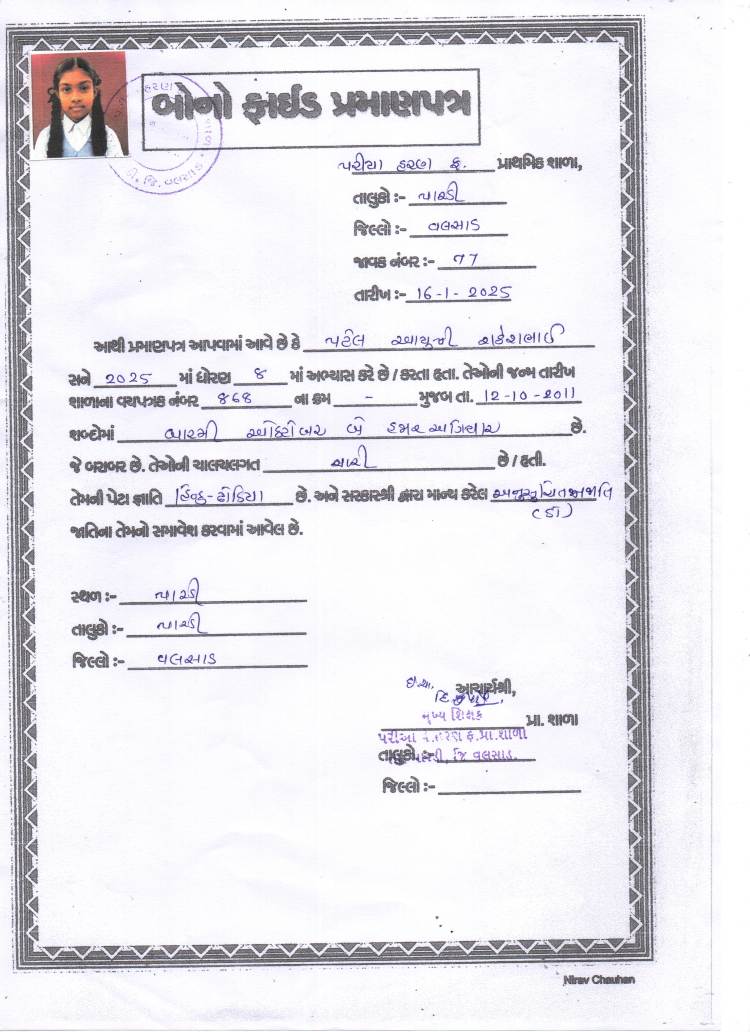 બોનો ફાઈડ પ્રમાણપત્ર
પરીયા હરણ ફ. પ્રાથમિક શાળા,
તાલુકો :- પારડી
જિલ્લો :- વલસાડ
જાવક નંબર :- ૧૧
તારીખ :- 16-1-2025
આથી પ્રમાણપત્ર આપવામાં આવે છે કે પટેલ આયુની રાકેશભાઈ
સને 2025 માં ધોરણ ૪ માં અભ્યાસ કરે છે / કરતા હતા. તેઓની જન્મ તારીખ
શાળાના વયપત્રક નંબર ૪૬૪ ના ક્રમ - મુજબ તા. 12-10-2011
શબ્દોમાં બારમી ઓક્ટોબર બે હજાર અગિયાર છે.
જે બરાબર છે. તેઓની ચાલચલગત સારી છે / હતી.
તેમની પેટા જ્ઞાતિ હિન્દુ-ઢોડિયા છે. અને સરકારશ્રી દ્વારા માન્ય કરેલ અનુસૂચિતજનજાતિ
જાતિના તેમનો સમાવેશ કરવામાં આવેલ છે.
સ્થળ :- પારડી
તાલુકો :- પારડી
જિલ્લો :- વલસાડ
આચાર્યશ્રી,
મુખ્ય શિક્ષક પ્રા. શાળા
પરીઆ હરણ ફ.પ્રા.શાળા
તાલુકો :- પારડી, જિ વલસાડ.
જિલ્લો :-
Nirav Chauhan